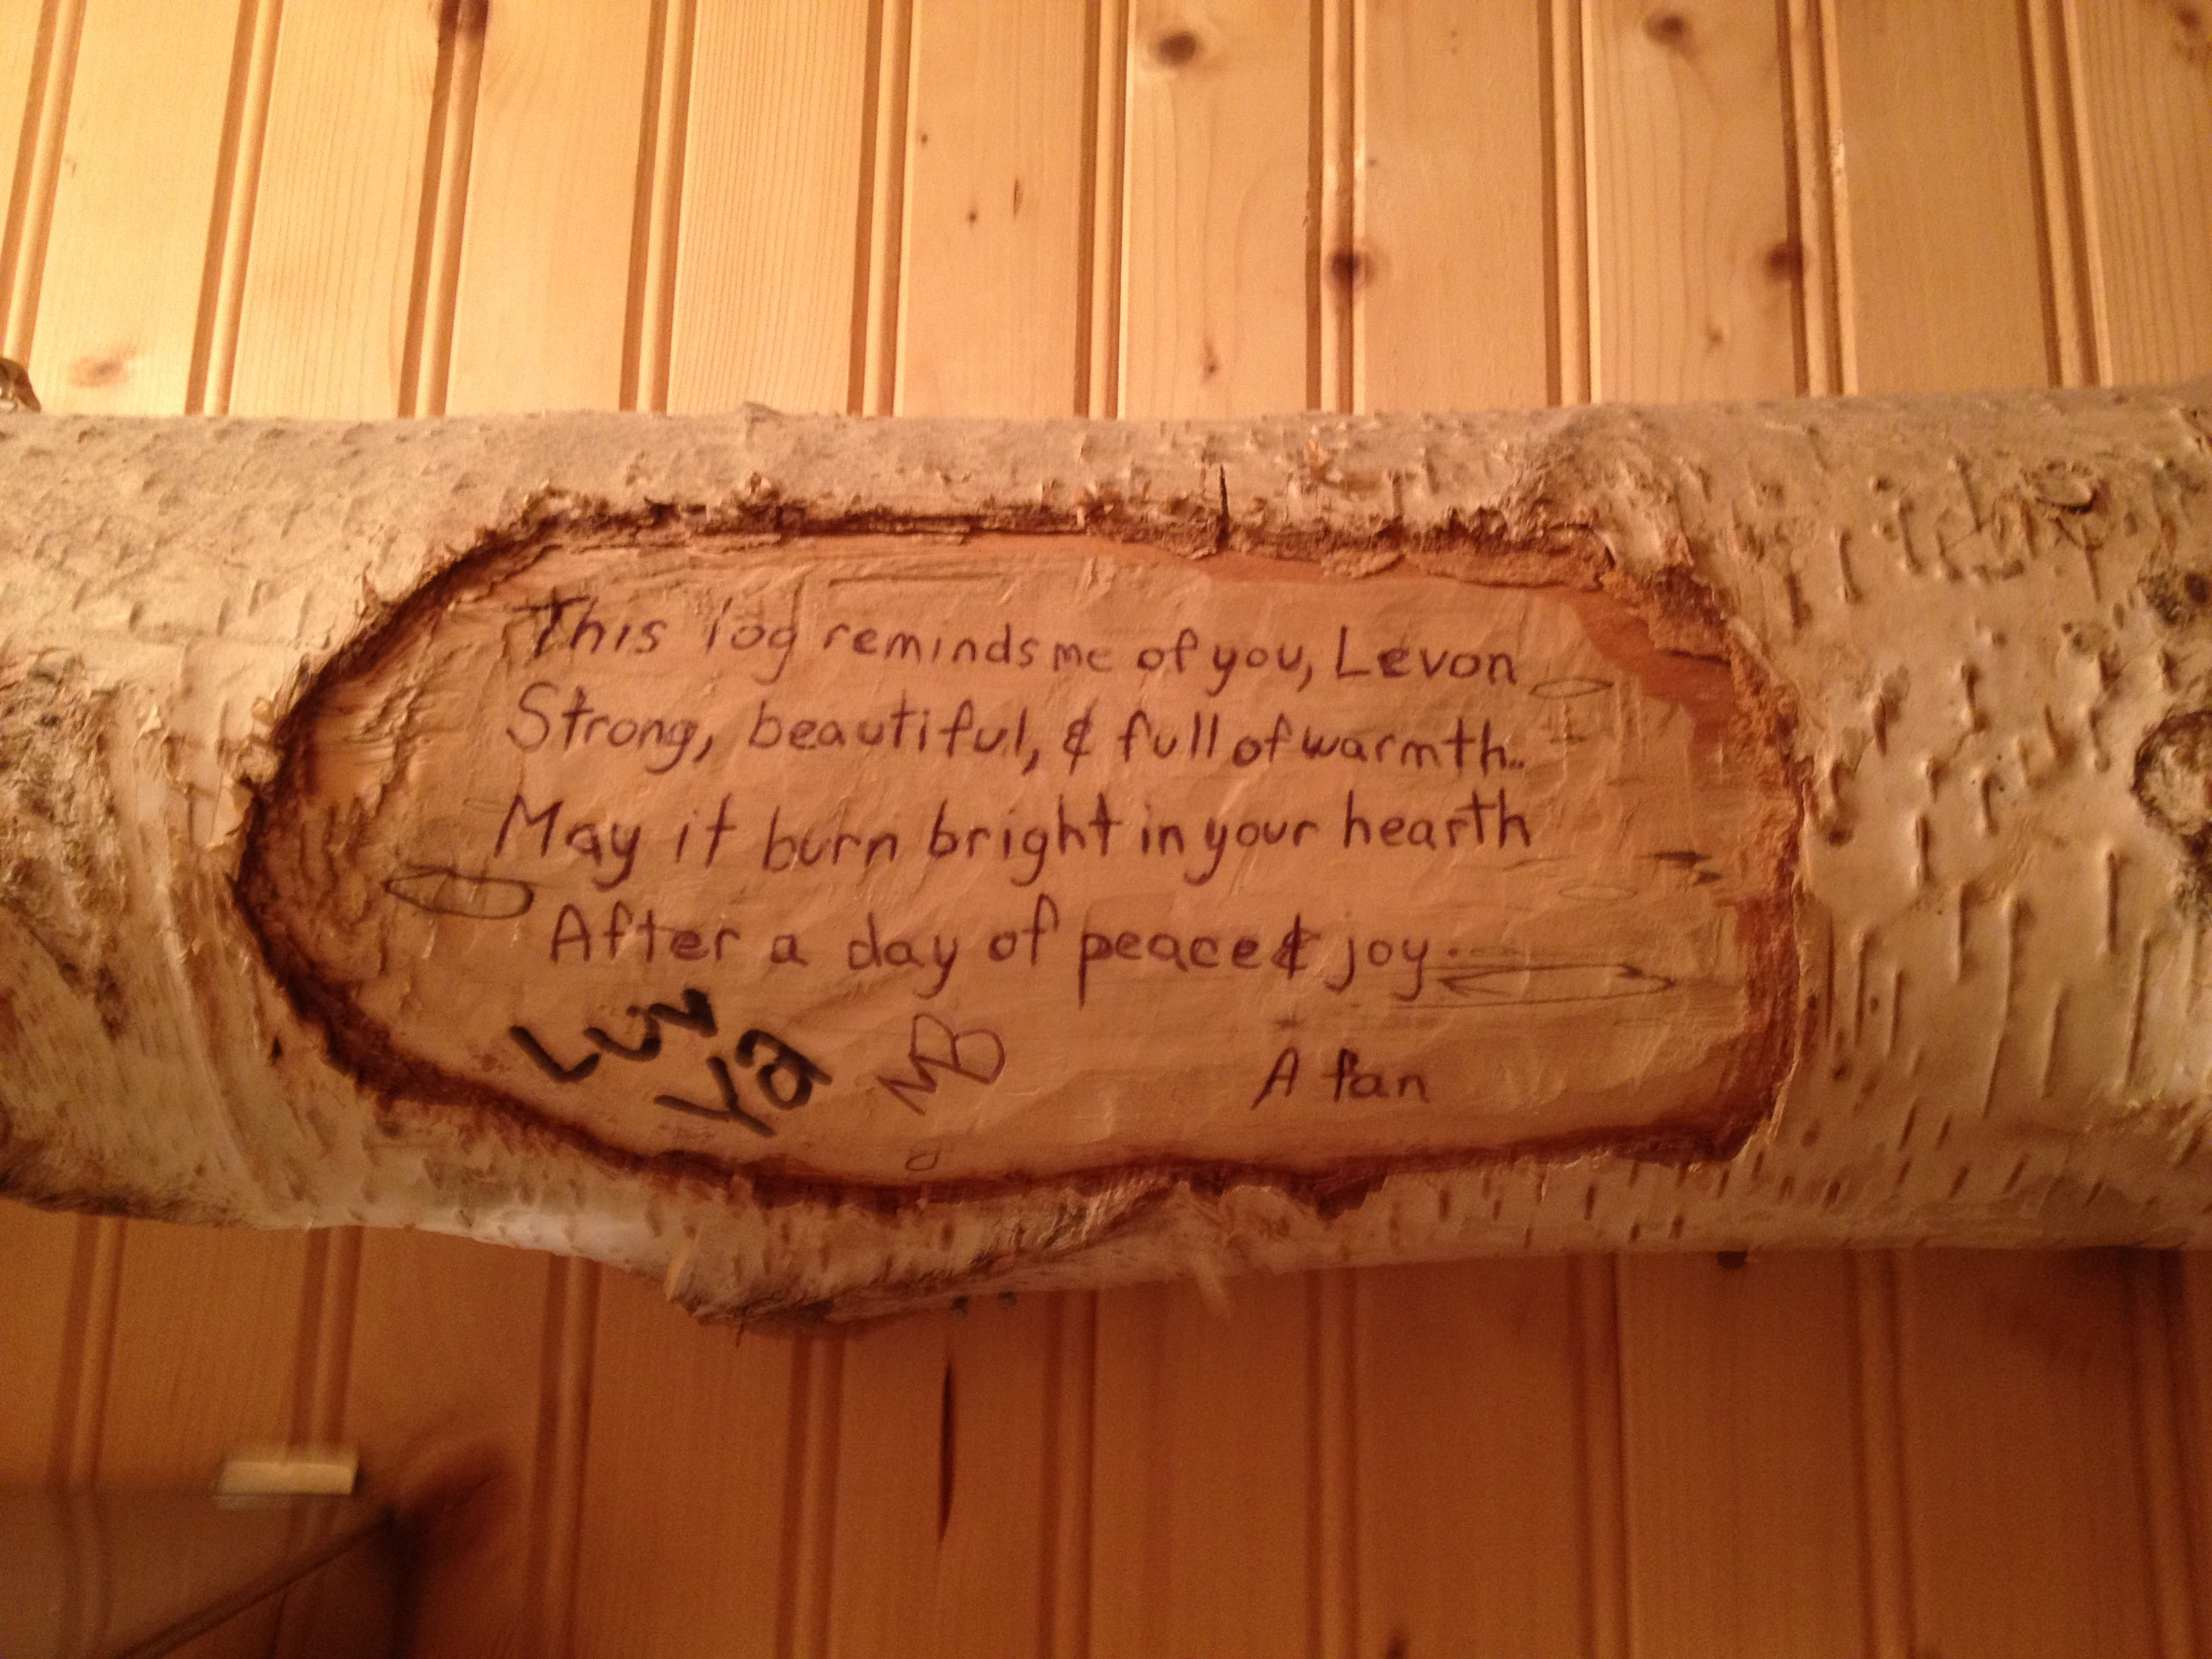 This log reminds me of you, Levon
Strong, beautiful, & full of warmth..
May it burn bright in your hearth
After a day of peace & joy.
Luv
Ya
MB
A fan